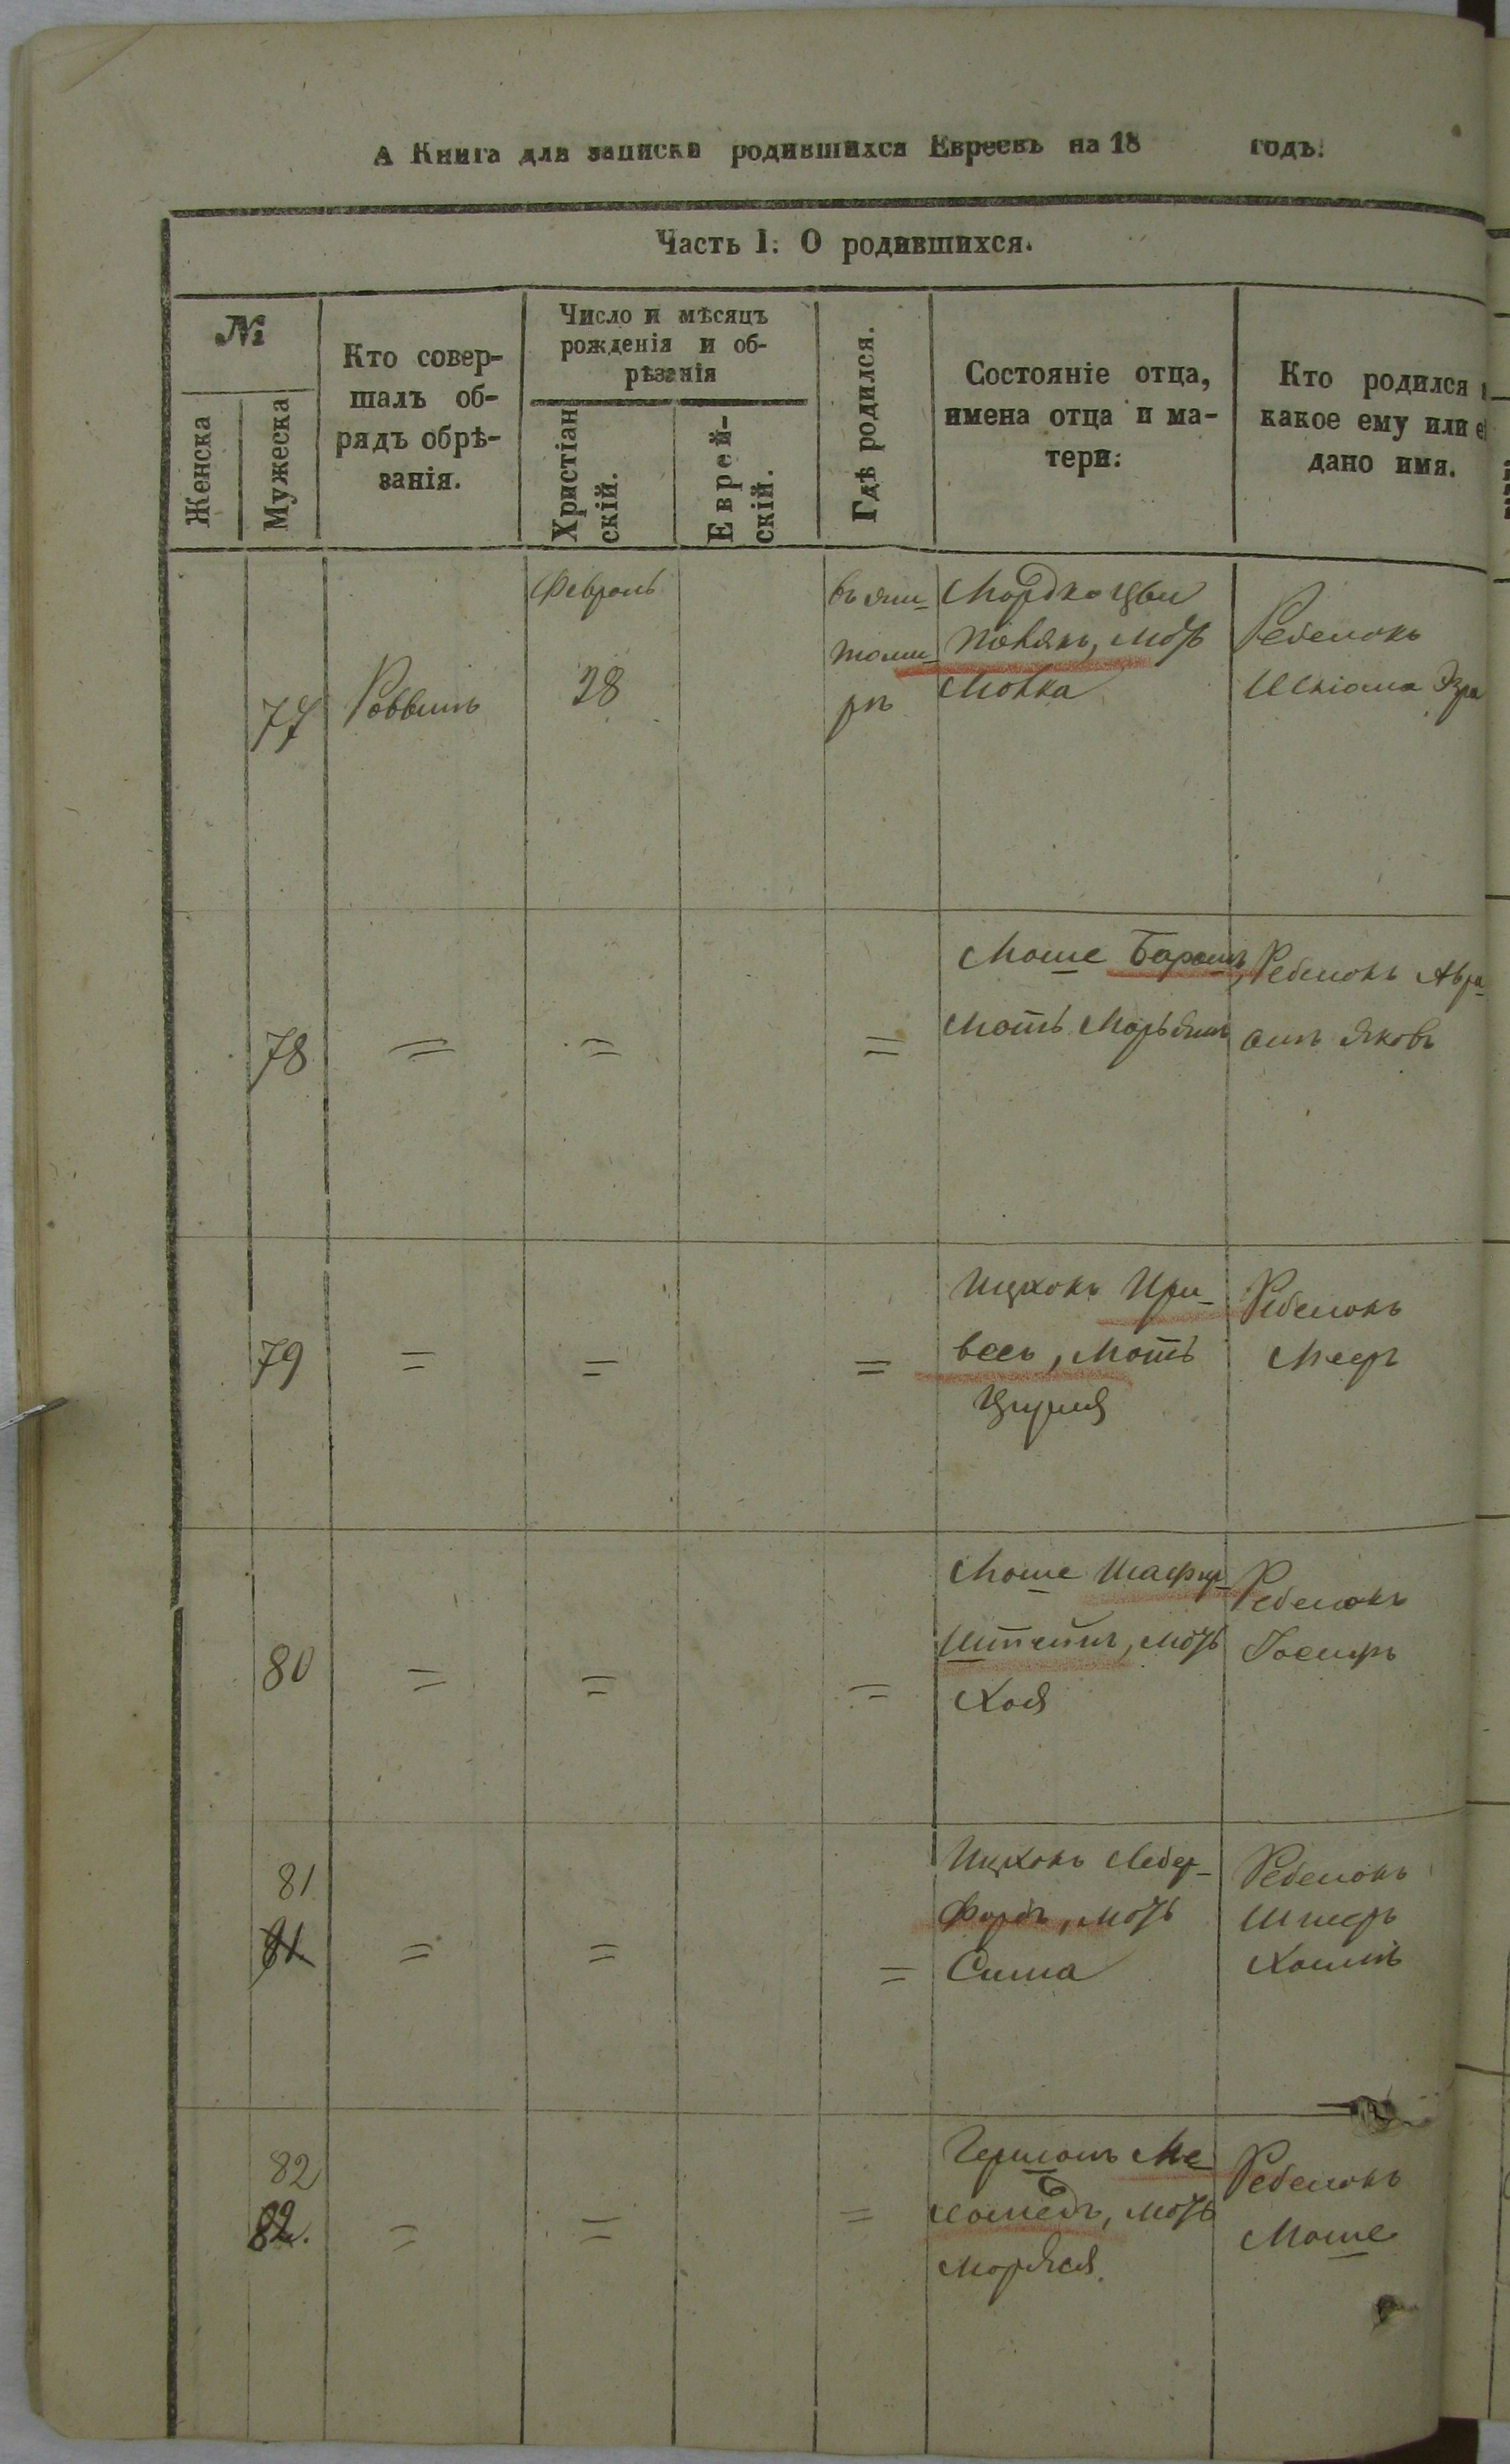 А Книга для записки родившихся Евреевъ на 18 годъ.
Часть I. О родившихся.
№
Женска
Мужеска
Кто совер-
шалъ об-
рядъ обрѣ-
занія.
Число и мѣсяцъ
рожденія и об-
рѣзанія
Христіан
скій.
Еврей-
скій.
Гдѣ родился.
Состояніе отца,
имена отца и ма-
тери:
Кто родился
какое ему или е
дано имя.
77
Раввинъ
Февраль
28
въ Жи-
томи-
рѣ
Мордко Цви
мать
Малка
Ребенокъ
Шліома Эзра
78
=
=
=
Моше Барашъ,
Мать Марьямъ
Ребенокъ Авра-
амъ Яковъ
79
=
=
=
Ицхокъ При-
весъ, Мать
Ципия
Ребенокъ
Мееръ
80
=
=
=
Моше Шафир-
штейнъ, мать
Хая
Ребенокъ
Іосифъ
81
81
=
=
=
Ицхокъ Ледер-
фарбъ, мать
Сима
Ребенокъ
Шнеер
Хаимъ
82
82.
=
=
=
Гершонъ Ме
ламедъ, мать
Ребенокъ
Моше